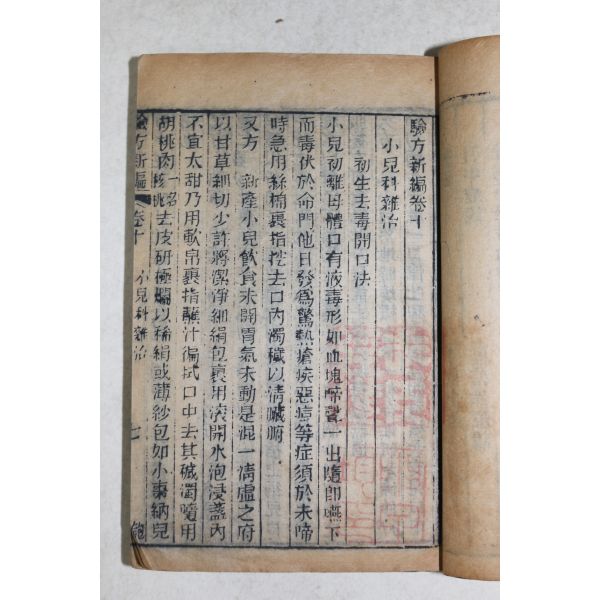 驗方新編卷十
小兒科雜治
初生去毒開口法
小兒初離母體口有液毒形如血塊啼聲一出隨即嚥下
而毒伏於命門他日發為驚熱瘡疾惡痘等症須於未啼
時急用絲棉裹指挖去口內濁穢以清臟腑
又方 新產小兒飲食未開胃氣未動是混一清虛之府
以甘草細切少許將潔淨細絹包裹用滾開水泡浸盞內
不宜太甜乃用軟帛裹指蘸汁徧拭口中去其穢濁隨用
胡桃肉一名核桃去皮研極爛以稀絹或薄紗包如小棗納兒
驗方新編 卷十 小兒科雜治